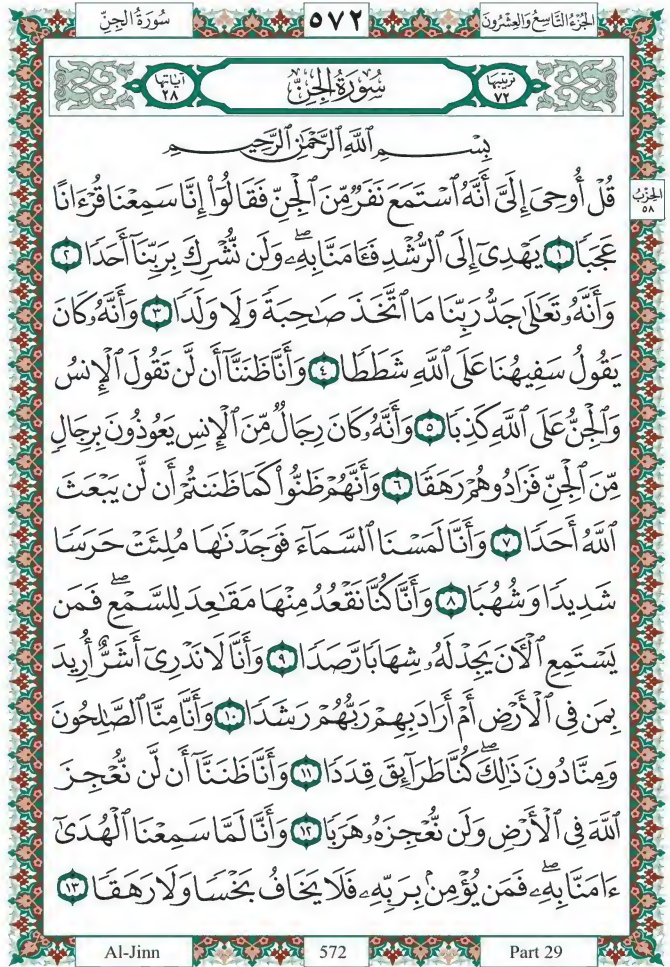 سُورَةُ الجِنِّ ٥٧٢ الجُزْءُ التَّاسِعُ وَالعِشْرُونَ
آيَاتُهَا ٢٨ سُورَةُ الجِنِّ تَرْتِيبُهَا ٧٢
بِسْمِ ٱللَّهِ ٱلرَّحْمَٰنِ ٱلرَّحِيمِ
الحِزْبُ ٥٨
قُلْ أُوحِيَ إِلَيَّ أَنَّهُ ٱسْتَمَعَ نَفَرٌ مِّنَ ٱلْجِنِّ فَقَالُوٓا۟ إِنَّا سَمِعْنَا قُرْءَانًا
عَجَبًا ١ يَهْدِىٓ إِلَى ٱلرُّشْدِ فَـَٔامَنَّا بِهِۦ ۖ وَلَن نُّشْرِكَ بِرَبِّنَآ أَحَدًا ٢
وَأَنَّهُۥ تَعَٰلَىٰ جَدُّ رَبِّنَا مَا ٱتَّخَذَ صَٰحِبَةً وَلَا وَلَدًا ٣ وَأَنَّهُۥ كَانَ
يَقُولُ سَفِيهُنَا عَلَى ٱللَّهِ شَطَطًا ٤ وَأَنَّا ظَنَنَّآ أَن لَّن تَقُولَ ٱلْإِنسُ
وَٱلْجِنُّ عَلَى ٱللَّهِ كَذِبًا ٥ وَأَنَّهُۥ كَانَ رِجَالٌ مِّنَ ٱلْإِنسِ يَعُوذُونَ بِرِجَالٍ
مِّنَ ٱلْجِنِّ فَزَادُوهُمْ رَهَقًا ٦ وَأَنَّهُمْ ظَنُّوا۟ كَمَا ظَنَنتُمْ أَن لَّن يَبْعَثَ
ٱللَّهُ أَحَدًا ٧ وَأَنَّا لَمَسْنَا ٱلسَّمَآءَ فَوَجَدْنَٰهَا مُلِئَتْ حَرَسًا
شَدِيدًا وَشُهُبًا ٨ وَأَنَّا كُنَّا نَقْعُدُ مِنْهَا مَقَٰعِدَ لِلسَّمْعِ ۖ فَمَن
يَسْتَمِعِ ٱلْءَانَ يَجِدْ لَهُۥ شِهَابًا رَّصَدًا ٩ وَأَنَّا لَا نَدْرِىٓ أَشَرٌّ أُرِيدَ
بِمَن فِى ٱلْأَرْضِ أَمْ أَرَادَ بِهِمْ رَبُّهُمْ رَشَدًا ١٠ وَأَنَّا مِنَّا ٱلصَّٰلِحُونَ
وَمِنَّا دُونَ ذَٰلِكَ ۖ كُنَّا طَرَآئِقَ قِدَدًا ١١ وَأَنَّا ظَنَنَّآ أَن لَّن نُّعْجِزَ
ٱللَّهَ فِى ٱلْأَرْضِ وَلَن نُّعْجِزَهُۥ هَرَبًا ١٢ وَأَنَّا لَمَّا سَمِعْنَا ٱلْهُدَىٰٓ
ءَامَنَّا بِهِۦ ۖ فَمَن يُؤْمِنۢ بِرَبِّهِۦ فَلَا يَخَافُ بَخْسًا وَلَا رَهَقًا ١٣
Al-Jinn 572 Part 29